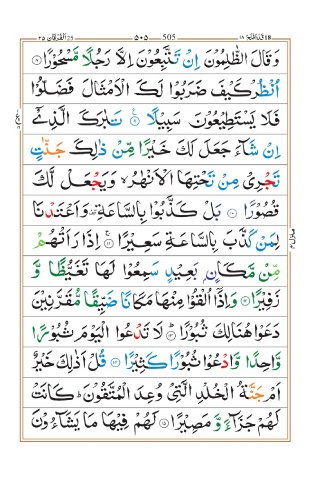 قد افلح ١٨ 505 ٥٠٥ الفرقان ٢٥
وَقَالَ الظّٰلِمُوْنَ اِنْ تَتَّبِعُوْنَ اِلَّا رَجُلًا مَّسْحُوْرًا ٨
اُنْظُرْ كَيْفَ ضَرَبُوْا لَكَ الْاَمْثَالَ فَضَلُّوْا
فَلَا يَسْتَطِيْعُوْنَ سَبِيْلًا ٩ تَبٰرَكَ الَّذِيْۤ
اِنْ شَآءَ جَعَلَ لَكَ خَيْرًا مِّنْ ذٰلِكَ جَنّٰتٍ
تَجْرِيْ مِنْ تَحْتِهَا الْاَنْهٰرُ ۙ وَيَجْعَلْ لَّكَ
قُصُوْرًا ١٠ بَلْ كَذَّبُوْا بِالسَّاعَةِ ۫ وَاَعْتَدْنَا
لِمَنْ كَذَّبَ بِالسَّاعَةِ سَعِيْرًا ١١ اِذَا رَاَتْهُمْ
مِّنْ مَّكَانٍۢ بَعِيْدٍ سَمِعُوْا لَهَا تَغَيُّظًا وَّ
زَفِيْرًا ١٢ وَاِذَاۤ اُلْقُوْا مِنْهَا مَكَانًا ضَيِّقًا مُّقَرَّنِيْنَ
دَعَوْا هُنَالِكَ ثُبُوْرًا ١٣ لَا تَدْعُوا الْيَوْمَ ثُبُوْرًا
وَّاحِدًا وَّادْعُوْا ثُبُوْرًا كَثِيْرًا ١٤ قُلْ اَذٰلِكَ خَيْرٌ
اَمْ جَنَّةُ الْخُلْدِ الَّتِيْ وُعِدَ الْمُتَّقُوْنَ ؕ كَانَتْ
لَهُمْ جَزَآءً وَّ مَصِيْرًا ١٥ لَهُمْ فِيْهَا مَا يَشَآءُوْنَ